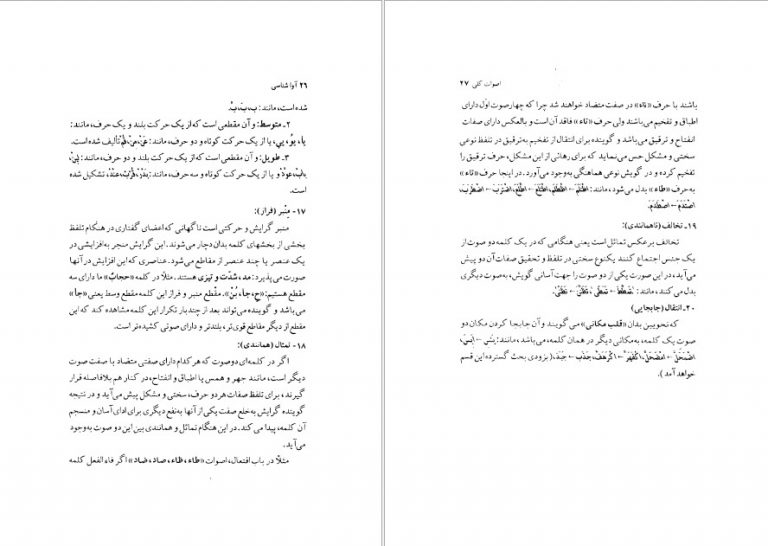 ۲۶ آوا شناسی
شده است، مانند: بِ، بَ، بُ.
۲ـ متوسط: و آن مقطعی است که از یک حرکت بلند و یک حرف، مانند:
یا، یُو، یی، یا از یک حرکت کوتاه و دو حرف، مانند: تألیف شده است.
۳ـ طویل: و آن مقطعی است که از یک حرکت بلند و دو حرف، مانند:
و یا از یک حرکت کوتاه و سه حرف، مانند: تشکیل شده
است.
۱۷ـ مِنْبر (فراز):
منبر گرایش و حرکتی است ناگهانی که اعضای گفتاری در هنگام تلفظ
بخشی از بخشهای کلمه بدان دچار می‌شوند. این گرایش منجر به‌افزایشی در
یک عنصر یا چند عنصر از مقاطع می‌شود. عناصری که این افزایش در آنها
صورت می‌پذیرد: مد، شدّت و تیزی هستند. مثلاً در کلمه «حجابٌ» ما دارای سه
مقطع هستیم: «حِ، جا، بُنْ». مقطع منبر و فراز این کلمه مقطع وسط یعنی «جا»
می‌باشد و گوینده می‌تواند بعد از چندبار تکرار این کلمه مشاهده کند که این
مقطع از دیگر مقاطع قوی‌تر، بلندتر و دارای صوتی کشیده‌تر است.
۱۸ـ تماثل (همانندی):
اگر در کلمه‌ای دو صوت که هر کدام دارای صفتی متضاد با صفت صوت
دیگر است، مانند جهر و همس یا اطباق و انفتاح، در کنار هم بلافاصله قرار
گیرند، برای تلفظ صفات هر دو حرف، سختی و مشکل پیش می‌آید و در نتیجه
گوینده گرایش به‌خلع صفت یکی از آنها به‌نفع دیگری برای ادای آسان و منسجم
آن کلمه، پیدا می‌کند. در این هنگام تماثل و همانندی بین این دو صوت به‌وجود
می‌آید.
مثلاً در باب افتعال، اصوات «طاء، ظاء، صاد، ضاد» اگر فاءالفعل کلمه
اصوات کلی ۲۷
باشند با حرف «تاء» در صفت متضاد خواهند شد چرا که چهار صوت اوّل دارای
اطباق و تفخیم می‌باشند ولی حرف «تاء» فاقد آن است و بالعکس دارای صفات
انفتاح و ترقیق می‌باشد و گوینده برای انتقال از تفخیم به‌ترقیق در تلفظ نوعی
سختی و مشکل حس می‌نماید که برای رهائی از این مشکل، حرف ترقیق را
تفخیم کرده و در گویش نوعی هماهنگی به‌وجود می‌آورد. در اینجا حرف «تاء»
به‌حرف «طاء» بدل می‌شود، مانند: اضْتَرَبَ ← اضْطَرَبَ،
اصْتَدَمَ ← اصْطَدَمَ.
۱۹ـ تخالف (ناهمانندی):
تخالف برعکس تماثل است یعنی هنگامی که در یک کلمه دو صوت از
یک جنس اجتماع کنند یکنوع سختی در تلفظ و تحقیق صفات آن دو پیش
می‌آید، در این صورت یکی از دو صوت را جهت آسانی گویش، به‌صوت دیگری
بدل می‌کنند، مانند:
۲۰ـ انتقال (جابجایی)
که نحویین بدان «قلب مکانی» می‌گویند و آن جابجا کردن مکان دو
صوت یک کلمه، به‌مکانی دیگر در همان کلمه، می‌باشد، مانند: یئس ← أیس،
جذب ← جبذ، (بزودی بحث گسترده این قسم
خواهد آمد)